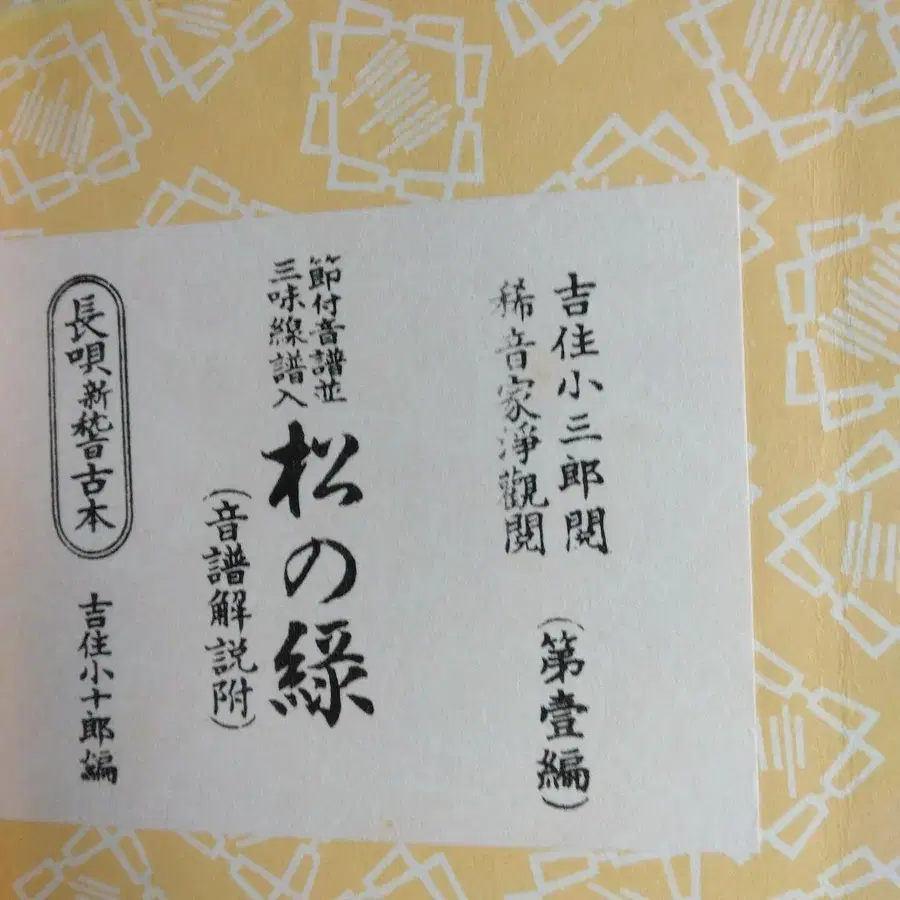 吉住小三郎閲
稀音家淨觀閲
(第壹編)
節付音譜並
三味線譜入
松の緑
(音譜解説附)
長唄新稽古本
吉住小十郎編